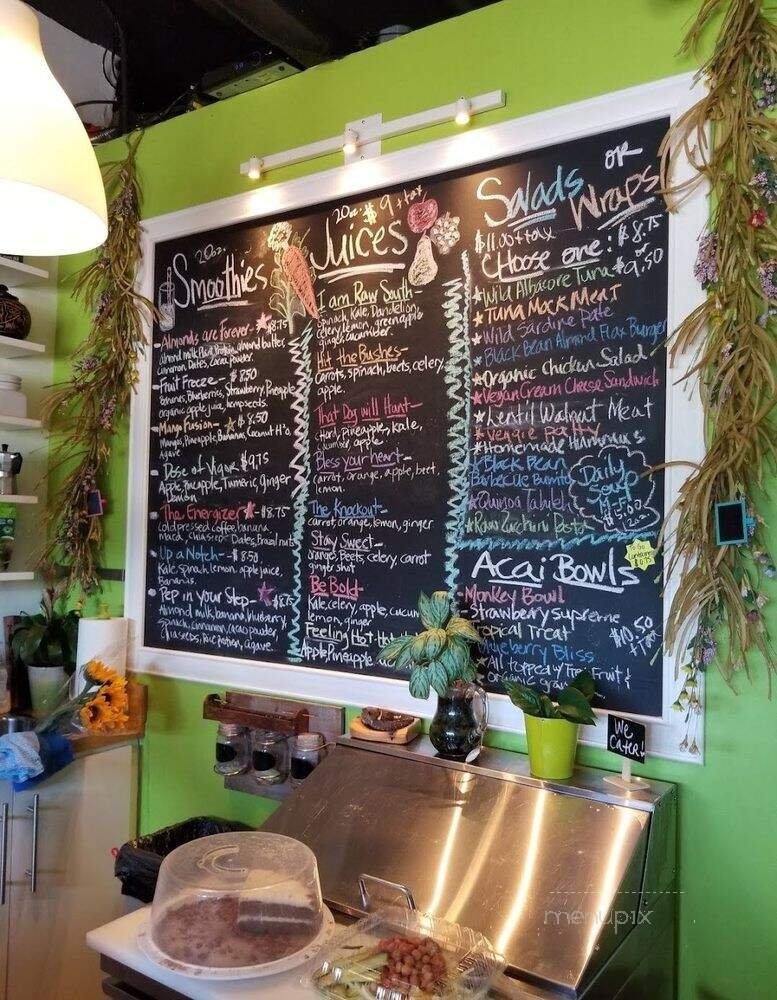 20oz.
Smoothies
Almonds are Forever - $8.75
almond milk, almond butter,
cinnamon, Dates, Cacao powder
Fruit Freeze - $8.50
Bananas, Blueberries, Strawberry, Pineapple
organic apple juice, hempseeds.
Mango Fusion - $8.50
Mango, Pineapple, Bananas, Coconut H2O,
Agave
Dose of Vigor $9.75
Apple, Pineapple, Tumeric, Ginger
Lemon
The Energizer - $8.75
Cold pressed coffee, banana,
maca, chia seeds, Dates, Brazil nuts
Up a Notch - $8.50
Kale, spinach, lemon, apple juice,
Bananas.
Pep in your Step - $8.75
Almond milk, banana, blueberry,
spinach, cinnamon, cacao powder,
chia seeds, rice protein, agave
20oz. $9 + tax
Juices
I am Raw South -
Spinach, Kale, Dandelion,
celery, lemon, green apple
ginger, cucumber.
Hit the Bushes -
Carrots, spinach, beets, celery
apple.
That Dog will Hunt -
chard, pineapples, kale,
cucumber, apple
Bless your heart -
carrot, orange, apple, beet,
lemon.
The Knockout -
carrot, orange, lemon, ginger
Stay Sweet -
orange, Beets, celery, carrot
ginger shot
Be Bold -
Kale, celery, apple, cucum
lemon, ginger
Feeling Hot Hot
Apple, Pineapple
Salads OR Wraps
$11.00 + tax
Choose one: $8.75
or
$9.50
★ Wild Albacore Tuna
★ Tuna Mock Meat
★ Wild Sardine Pate
★ Black Bean Almond Flax Burger
★ Organic Chicken Salad
★ Vegan Cream Cheese Sandwich
★ Lentil Walnut Meat
★ Veggie Patty
★ Homemade Hummus
★ Black Bean
Barbecue Burrito
★ Quinoa Tabuleh
★ Raw Zucchini Pasta
Daily
Soup
M-F
$5.00
12oz
To Go
Container
Acai Bowls
- Monkey Bowl
- Strawberry Supreme
Tropical Treat
Blueberry Bliss
$10.50
+ tax
★ All topped w/ Fresh Fruit &
organic gran
We
Cater!
menupix